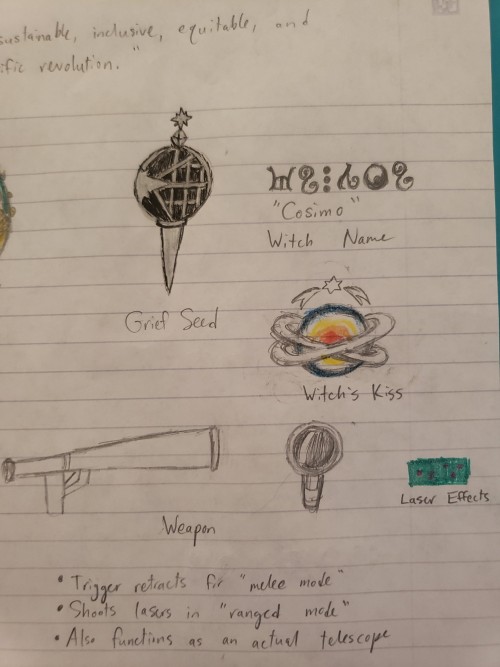 sustainable, inclusive, equitable, and
ific revolution."
"Cosimo"
Witch Name
Grief Seed
Witch's Kiss
Laser Effects
Weapon
• Trigger retracts for "melee mode"
• Shoots lasers in "ranged mode"
• Also functions as an actual telescope